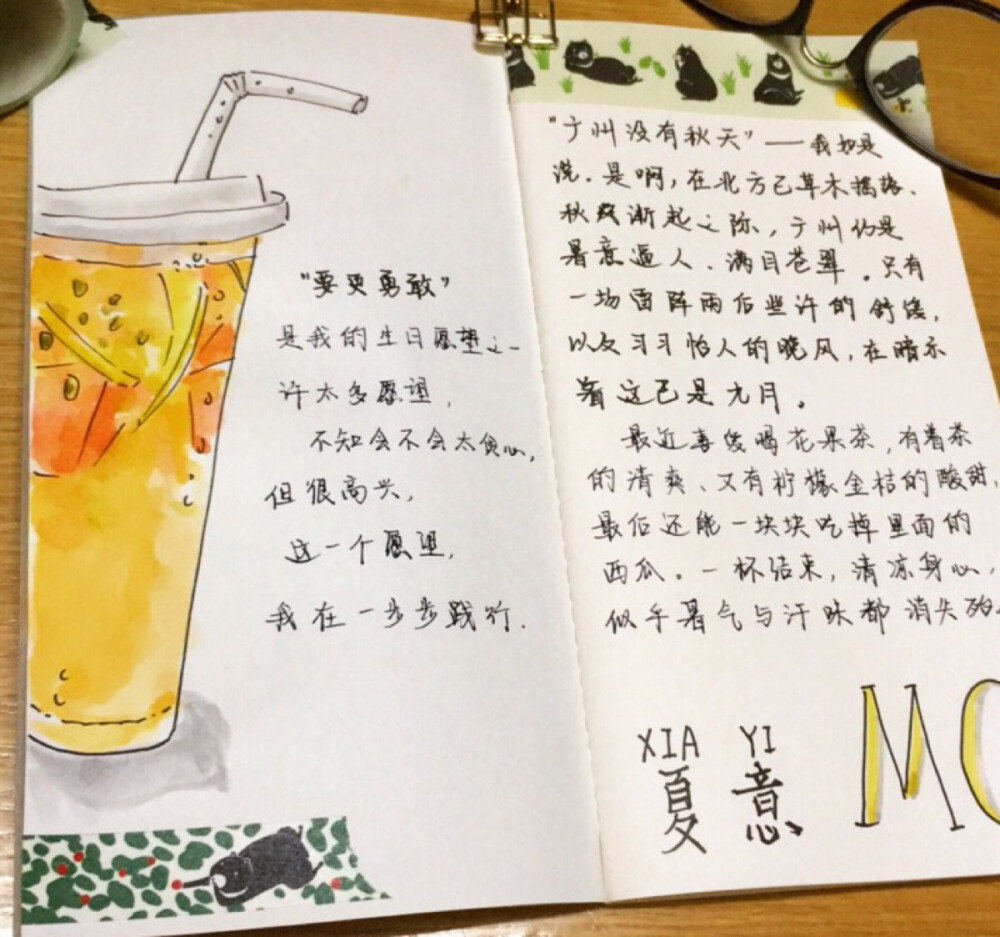 "要更勇敢"
是我的生日愿望之一
许太多愿望,
不知会不会太贪心,
但很高兴,
这一个愿望,
我在一步步践行.
"广州没有秋天"——我如是
说.是啊,在北方已草木摇落、
秋风渐起之际,广州仍是
暑意逼人、满目苍翠。只有
一场雷阵雨后些许的舒缓,
以及习习怡人的晚风,在暗示
着这已是九月。
最近喜爱喝花果茶,有着茶
的清爽、又有柠檬金桔的酸甜,
最后还能一块块吃掉里面的
西瓜。一杯结束,清凉身心,
似乎暑气与汗味都消失殆
XIA YI
夏意
MO